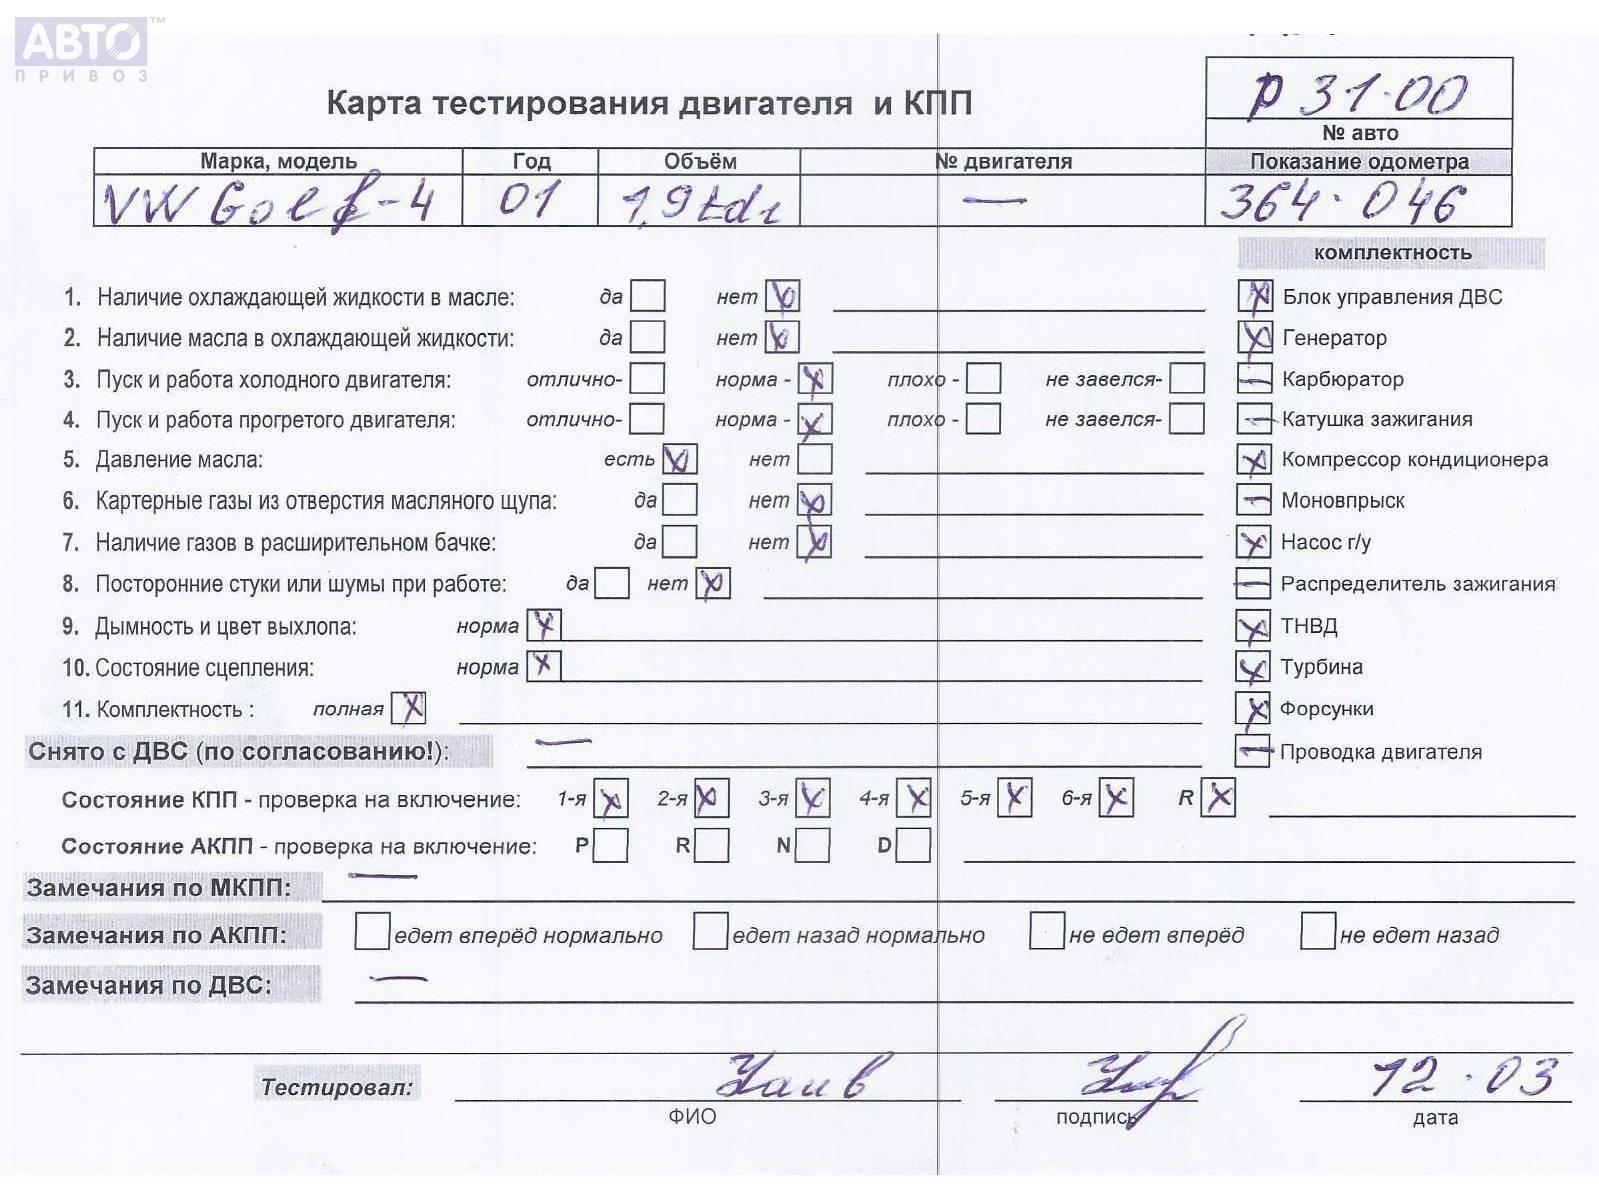 АВТО™
ПРИВОЗ
р 31·00
Карта тестирования двигателя и КПП
№ авто
Марка, модель Год Объём № двигателя Показание одометра
VW Golf-4 01 1,9 tdi — 364·046
комплектность
1. Наличие охлаждающей жидкости в масле: да нет Блок управления ДВС
2. Наличие масла в охлаждающей жидкости: да нет Генератор
3. Пуск и работа холодного двигателя: отлично- норма - плохо - не завелся- Карбюратор
4. Пуск и работа прогретого двигателя: отлично- норма - плохо - не завелся- Катушка зажигания
5. Давление масла: есть нет Компрессор кондиционера
6. Картерные газы из отверстия масляного щупа: да нет Моновпрыск
7. Наличие газов в расширительном бачке: да нет Насос г/у
8. Посторонние стуки или шумы при работе: да нет Распределитель зажигания
9. Дымность и цвет выхлопа: норма ТНВД
10. Состояние сцепления: норма Турбина
11. Комплектность : полная Форсунки
Снято с ДВС (по согласованию!): — Проводка двигателя
Состояние КПП - проверка на включение: 1-я 2-я 3-я 4-я 5-я 6-я R
Состояние АКПП - проверка на включение: P R N D
Замечания по МКПП: —
Замечания по АКПП: едет вперёд нормально едет назад нормально не едет вперёд не едет назад
Замечания по ДВС: —
Тестировал: 12·03
ФИО подпись дата